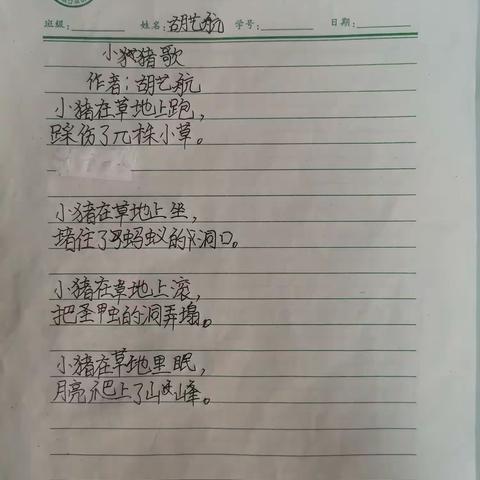 班级： 姓名：胡艺航 学号： 日期：
小猪歌
作者：胡艺航
小猪在草地上跑，
踩伤了几株小草。
小猪在草地上坐，
堵住了蚂蚁的洞口。
小猪在草地上滚，
把圣甲虫的洞弄塌。
小猪在草地里眠，
月亮爬上了山峰。